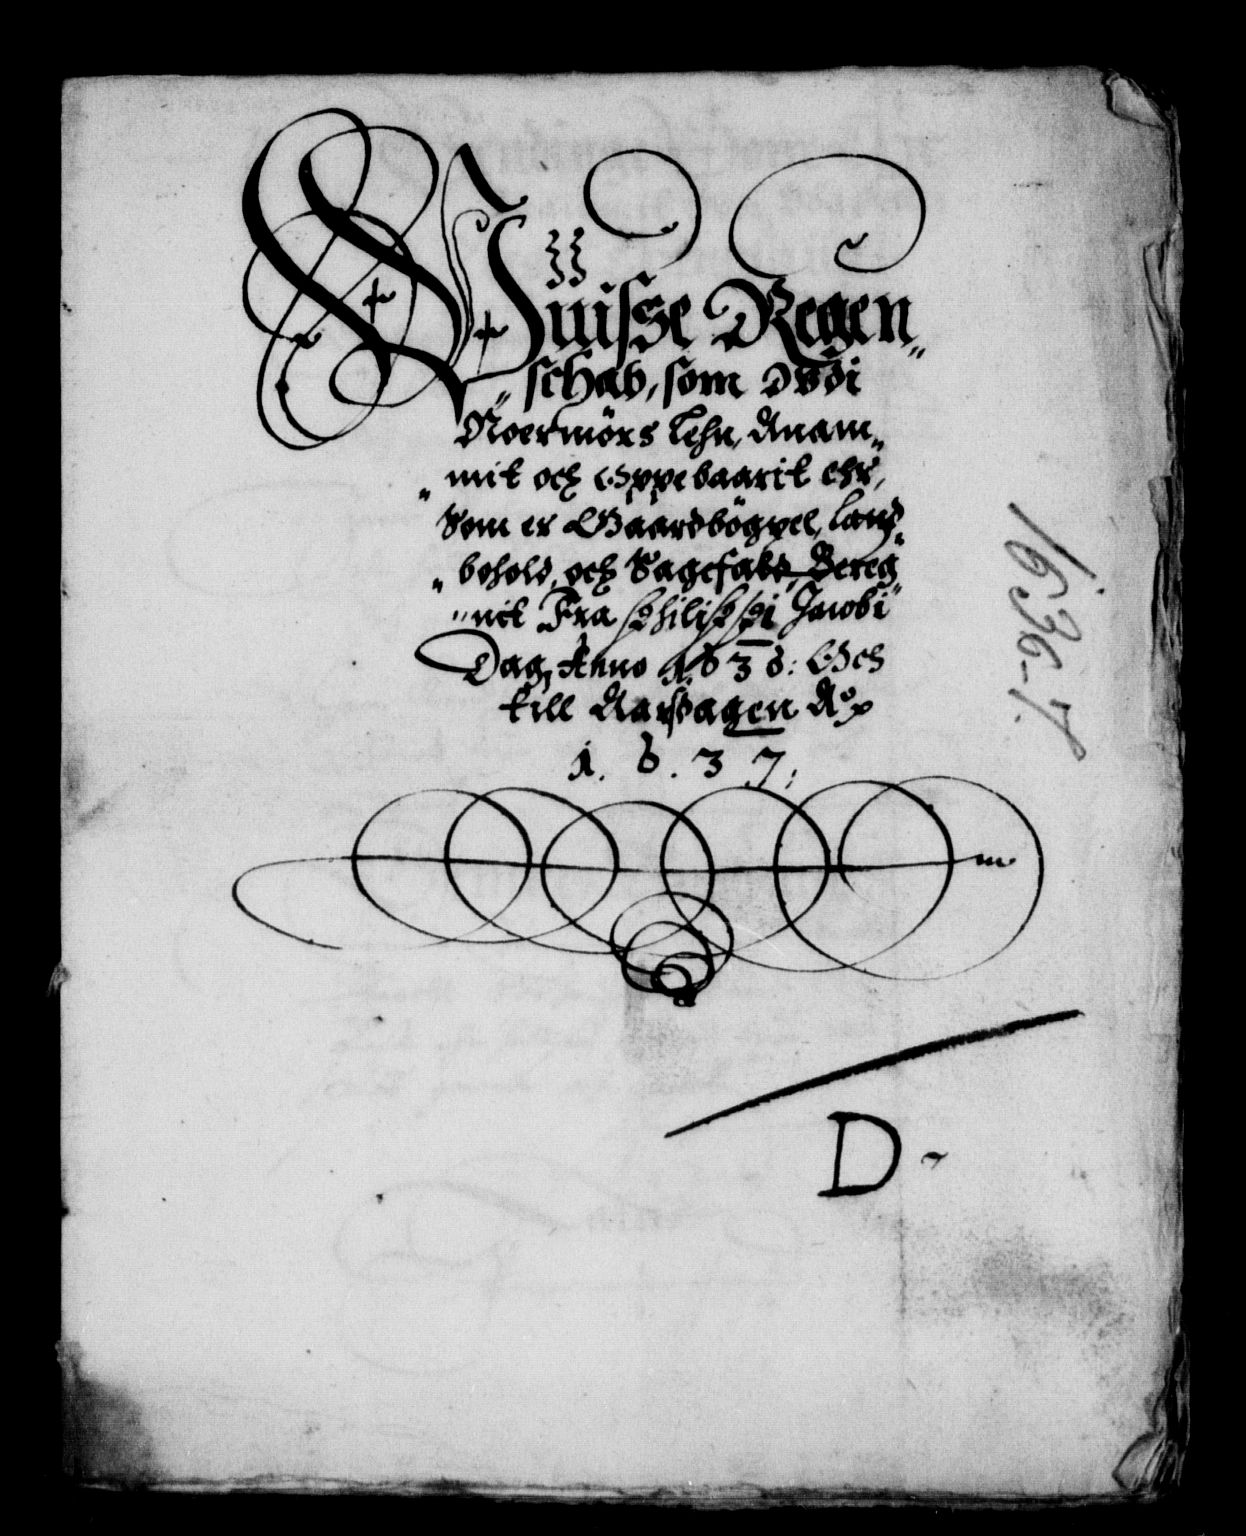 Wüisse Regen„
„schab, som Udi
Noermörs Lehn, Anam„
„mit och Oppebaarit ehr,
Som er Gaardbögxel, land„
„bohold, och Sagefald, Bereg„
„nit Fra Philippi Jacobi
Dag, Anno 1636: Och
till Aarsdagen A°
1. 6. 3 7;
D-
1636-7.